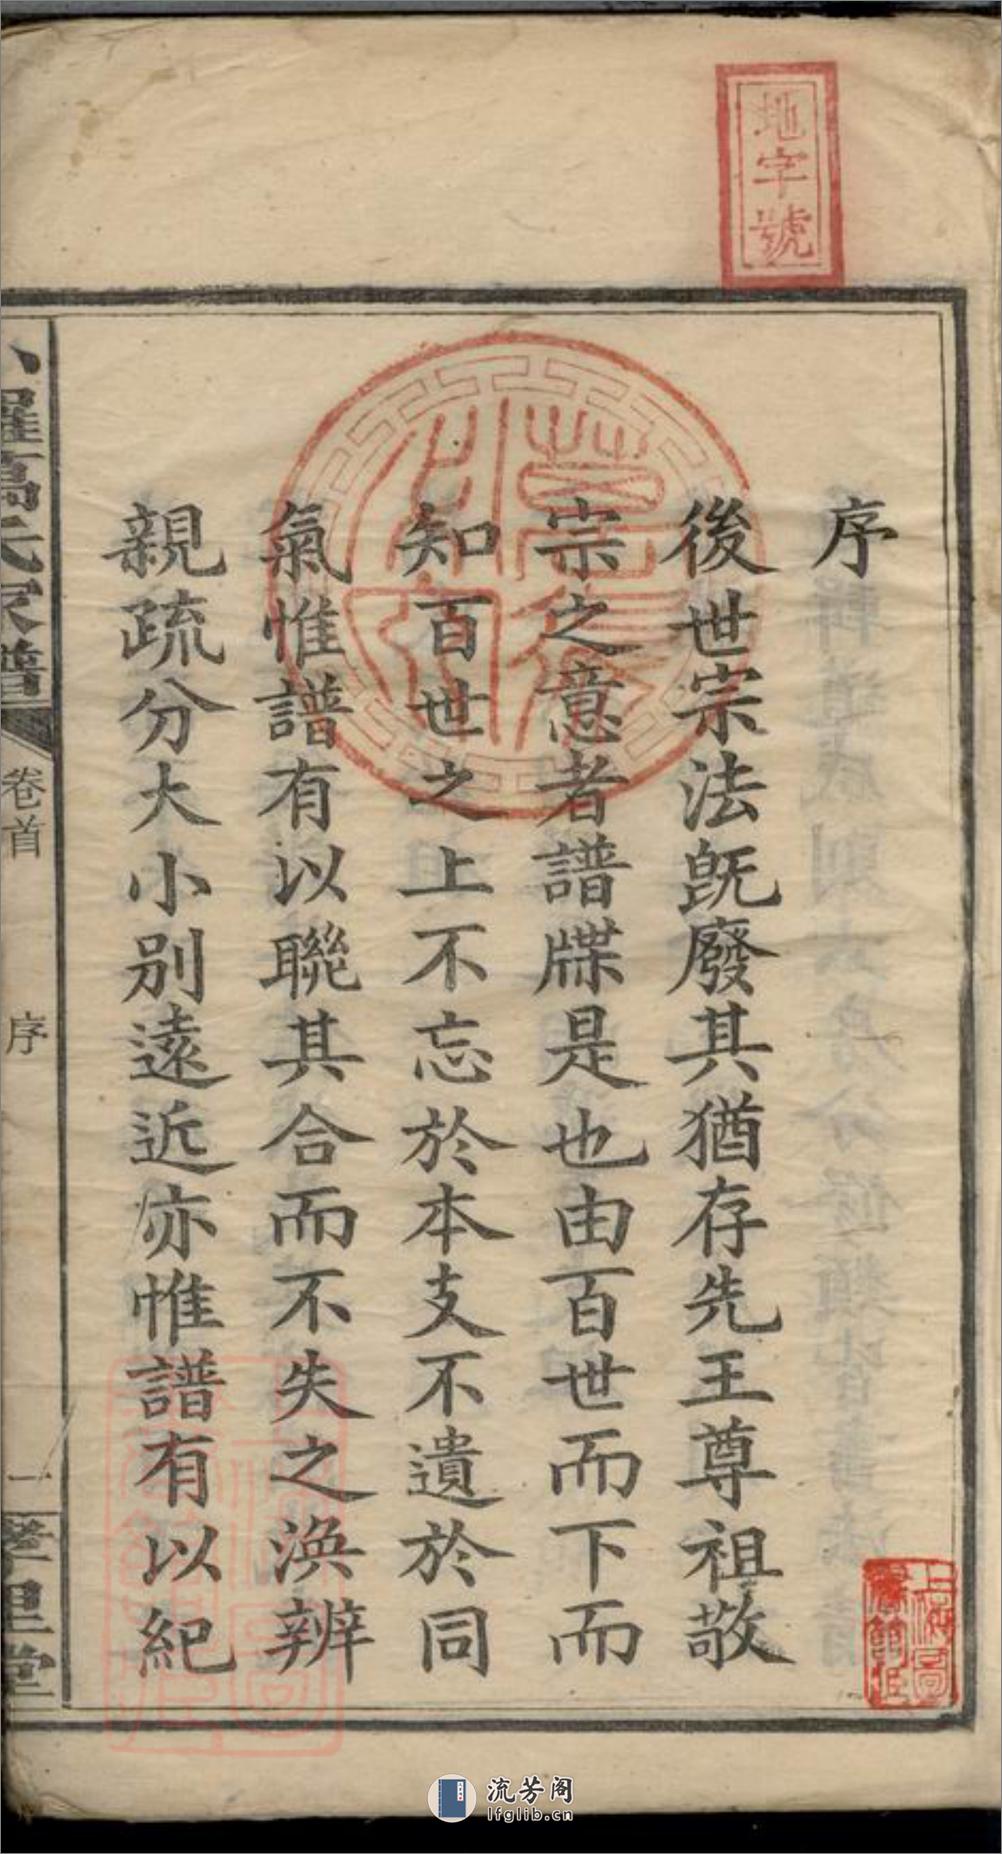 地字號
序
後世宗法旣廢其猶存先王尊祖敬
宗之意者譜牒是也由百世而下而
知百世之上不忘於本支不遺於同
氣惟譜有以聯其合而不失之渙辨
親疏分大小別遠近亦惟譜有以紀
羅葛氏家譜
卷首
序
一
孝里堂
上海圖書館藏
流芳阁
lfglib.cn